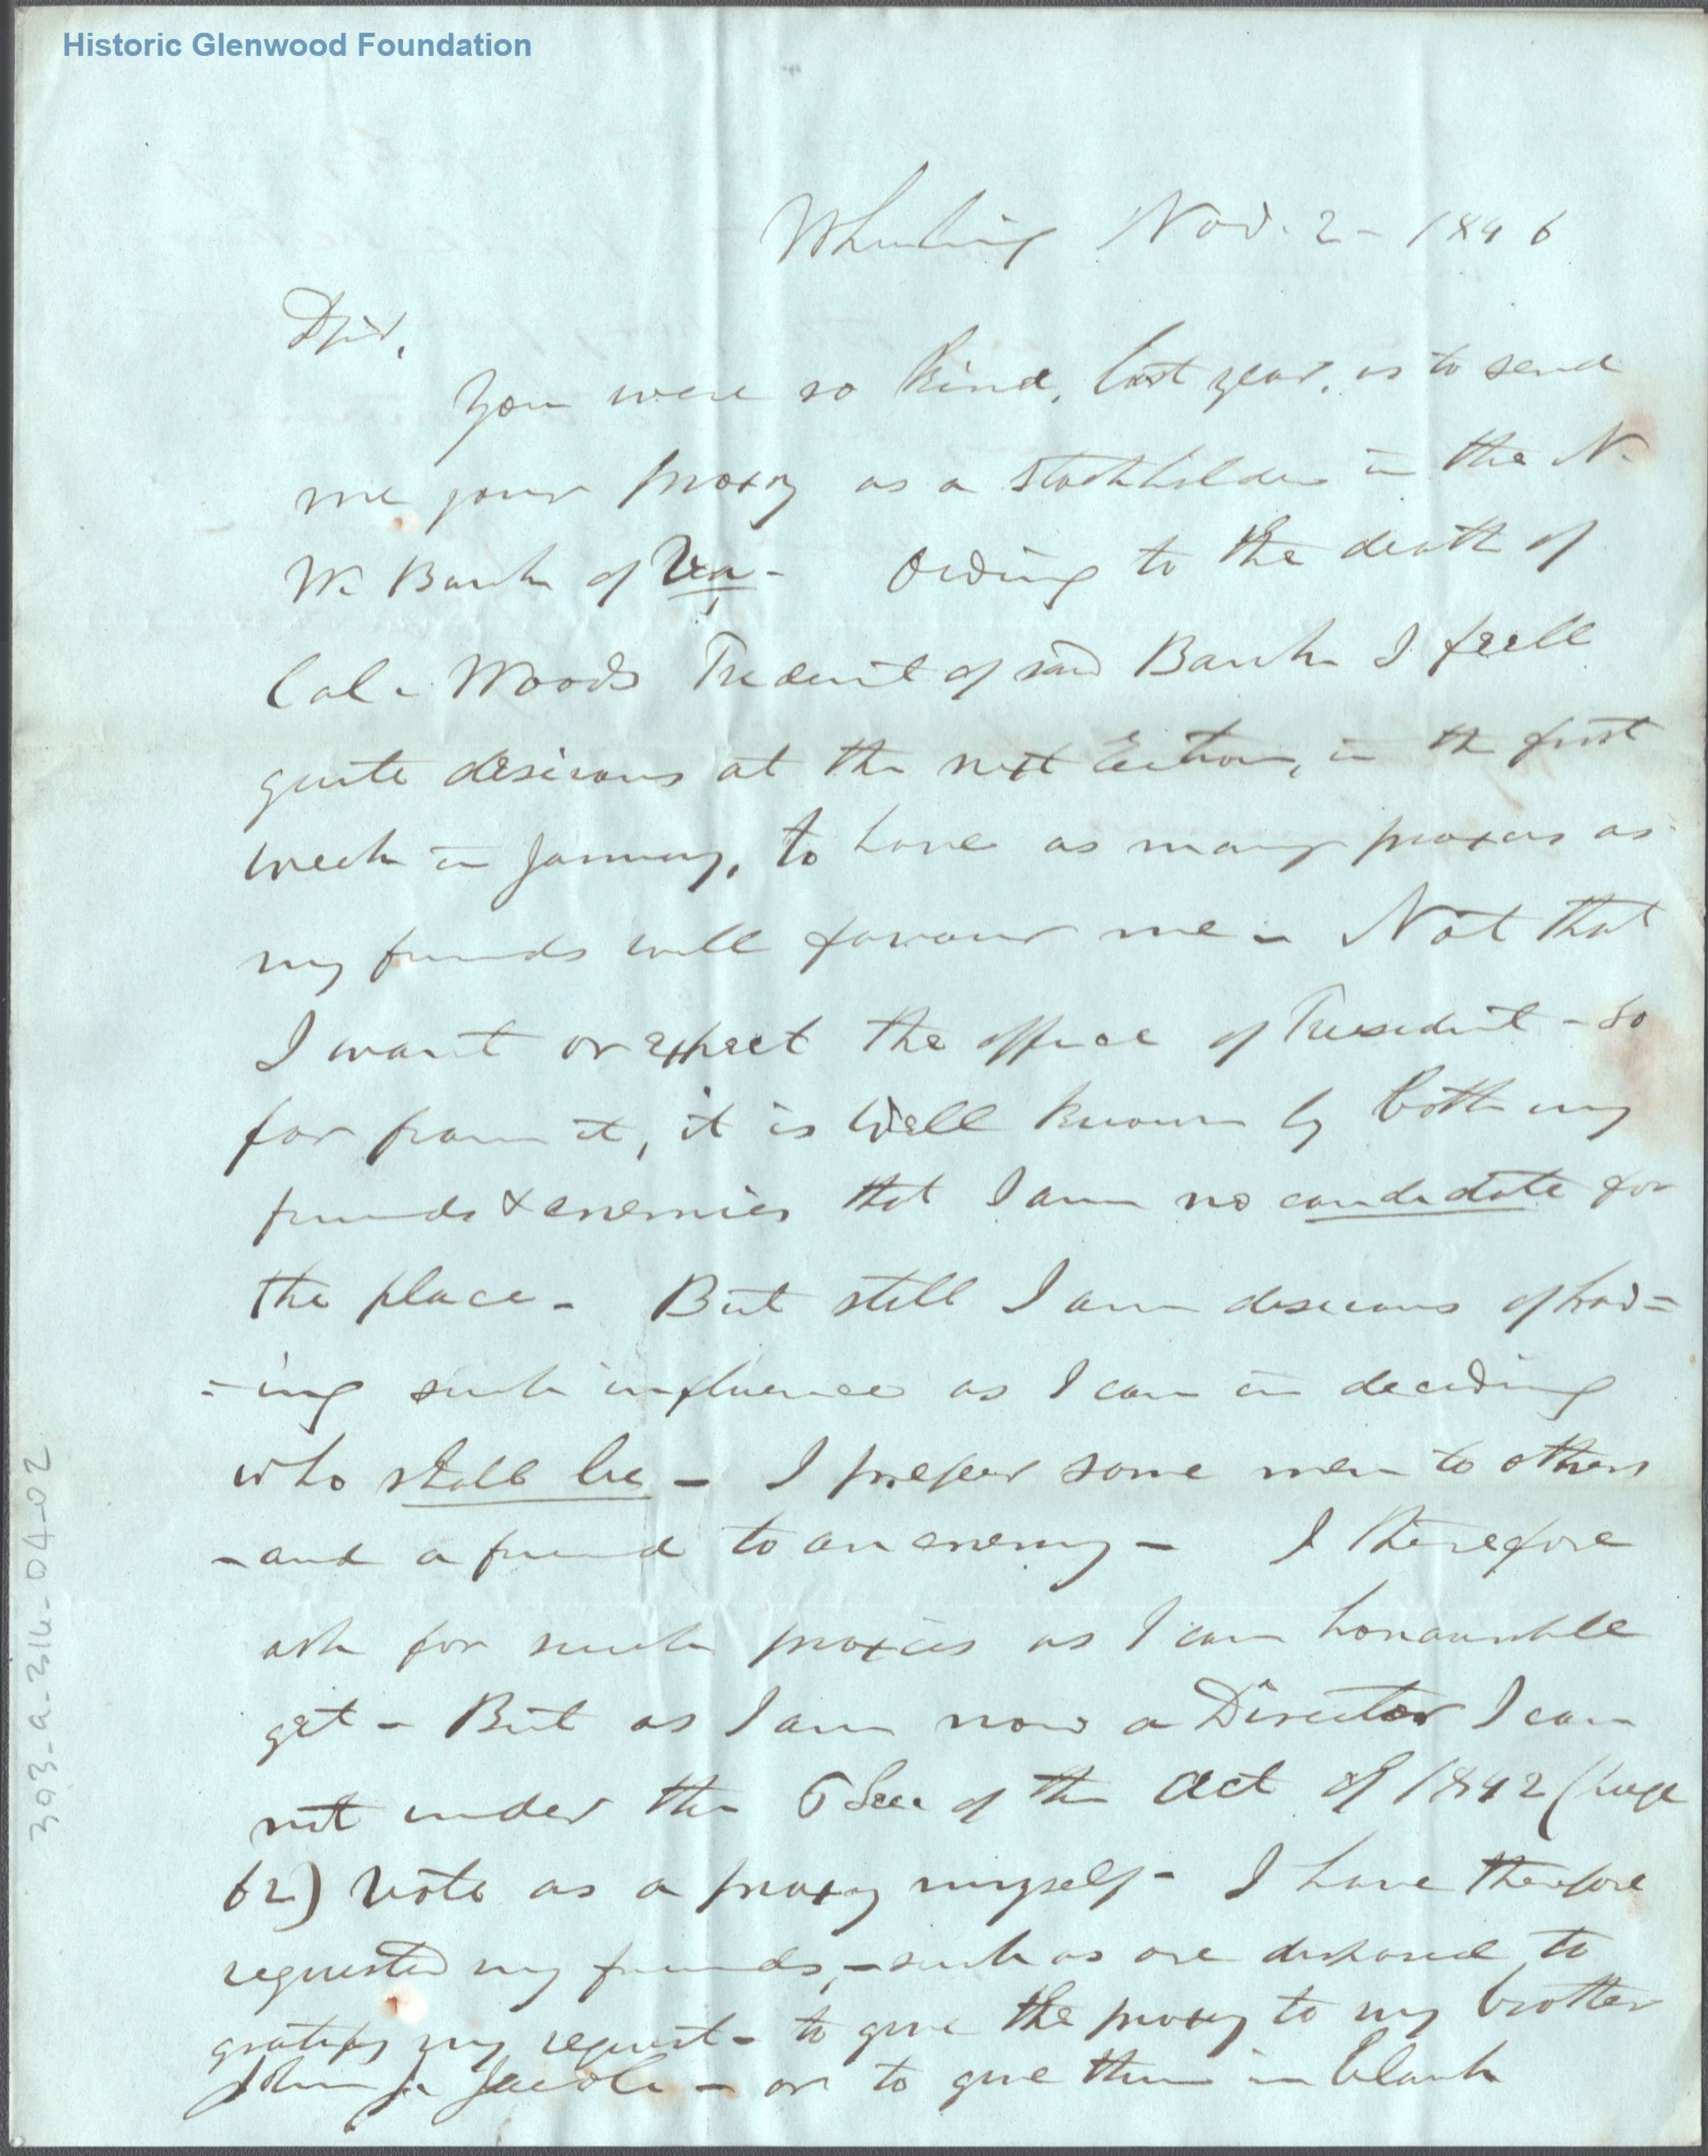 Historic Glenwood Foundation
Wheeling Nov. 2 - 1846
DSir,
You were so kind, last year, as to send
me your proxy as a Stockholder in the N.
W. Bank of Va - Owing to the death of
Col. Woods President of said Bank I feell
quite desirous at the next Election, in the first
week in January, to have as many proxies as
my friends will favour me - Not that
I want or expect the office of President - So
far from it, it is well known by both my
friends & enemies that I am no candidate for
the place - But still I am desirous of hav=
=ing such influence as I can in deciding
who shall be - I prefer some men to others
- and a friend to an enemy - I therefore
ask for such proxies as I can honourable
get - But as I am now a Director I can
not under the 6 Sec of the Act of 1842 (page
62) vote as a proxy myself - I have therefore
requested my friends, - such as are disposed to
gratify my request - to give the proxy to my brother
John J. Jacob - or to give them in blank
393-a-316-04-02